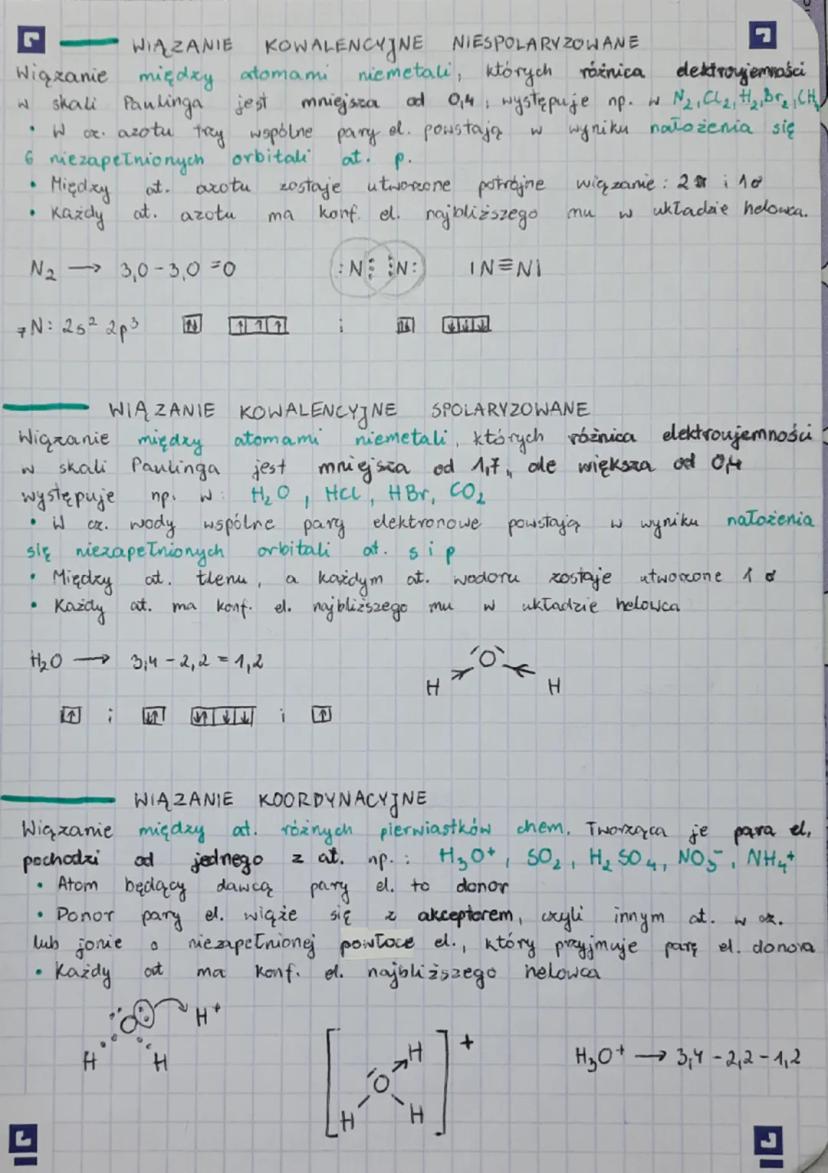 WIĄZANIE KOWALENCYJNE NIESPOLARYZOWANE
Wiązanie między atomami niemetali, których różnica elektroujemności
w skali Paulinga jest mniejsza od 0,4, występuje np. w N₂, Cl₂, H₂, Br₂, CH₄
• W cz. azotu trzy wspólne pary el. powstają w wyniku nałożenia się
6 niezapełnionych orbitali at. p.
• Między at. azotu zostaje utworzone potrójne wiązanie: 2π i 1σ
• Każdy at. azotu ma konf. el. najbliższego mu w układzie helowca.
N₂ → 3,0 - 3,0 = 0 :N⋮⋮N: |N≡N|
₇N: 2s² 2p³ [↑↓] [↑][↑][↑] i [↑↓] [↓][↓][↓]
WIĄZANIE KOWALENCYJNE SPOLARYZOWANE
Wiązanie między atomami niemetali, których różnica elektroujemności
w skali Paulinga jest mniejsza od 1,7, ale większa od 0,4
występuje np. w: H₂O, HCl, HBr, CO₂
• W cz. wody wspólne pary elektronowe powstają w wyniku nałożenia
się niezapełnionych orbitali at. s i p
• Między at. tlenu, a każdym at. wodoru zostaje utworzone 1 σ
• Każdy at. ma konf. el. najbliższego mu w układzie helowca
H₂O → 3,4 - 2,2 = 1,2
O
H H
[↑] ; [↑↓] [↑↓][↓][↓] i [↑]
WIĄZANIE KOORDYNACYJNE
Wiązanie między at. różnych pierwiastków chem. Tworząca je para el.
pochodzi od jednego z at. np.: H₃O⁺, SO₂, H₂SO₄, NO₃⁻, NH₄⁺
• Atom będący dawcą pary el. to donor
• Donor pary el. wiąże się z akceptorem, czyli innym at. w cz.
lub jonie o niezapełnionej powłoce el., który przyjmuje parę el. donora
• Każdy at ma konf. el. najbliższego helowca
O H⁺
H H
[H O H H]⁺
H₃O⁺ → 3,4 - 2,2 - 1,2